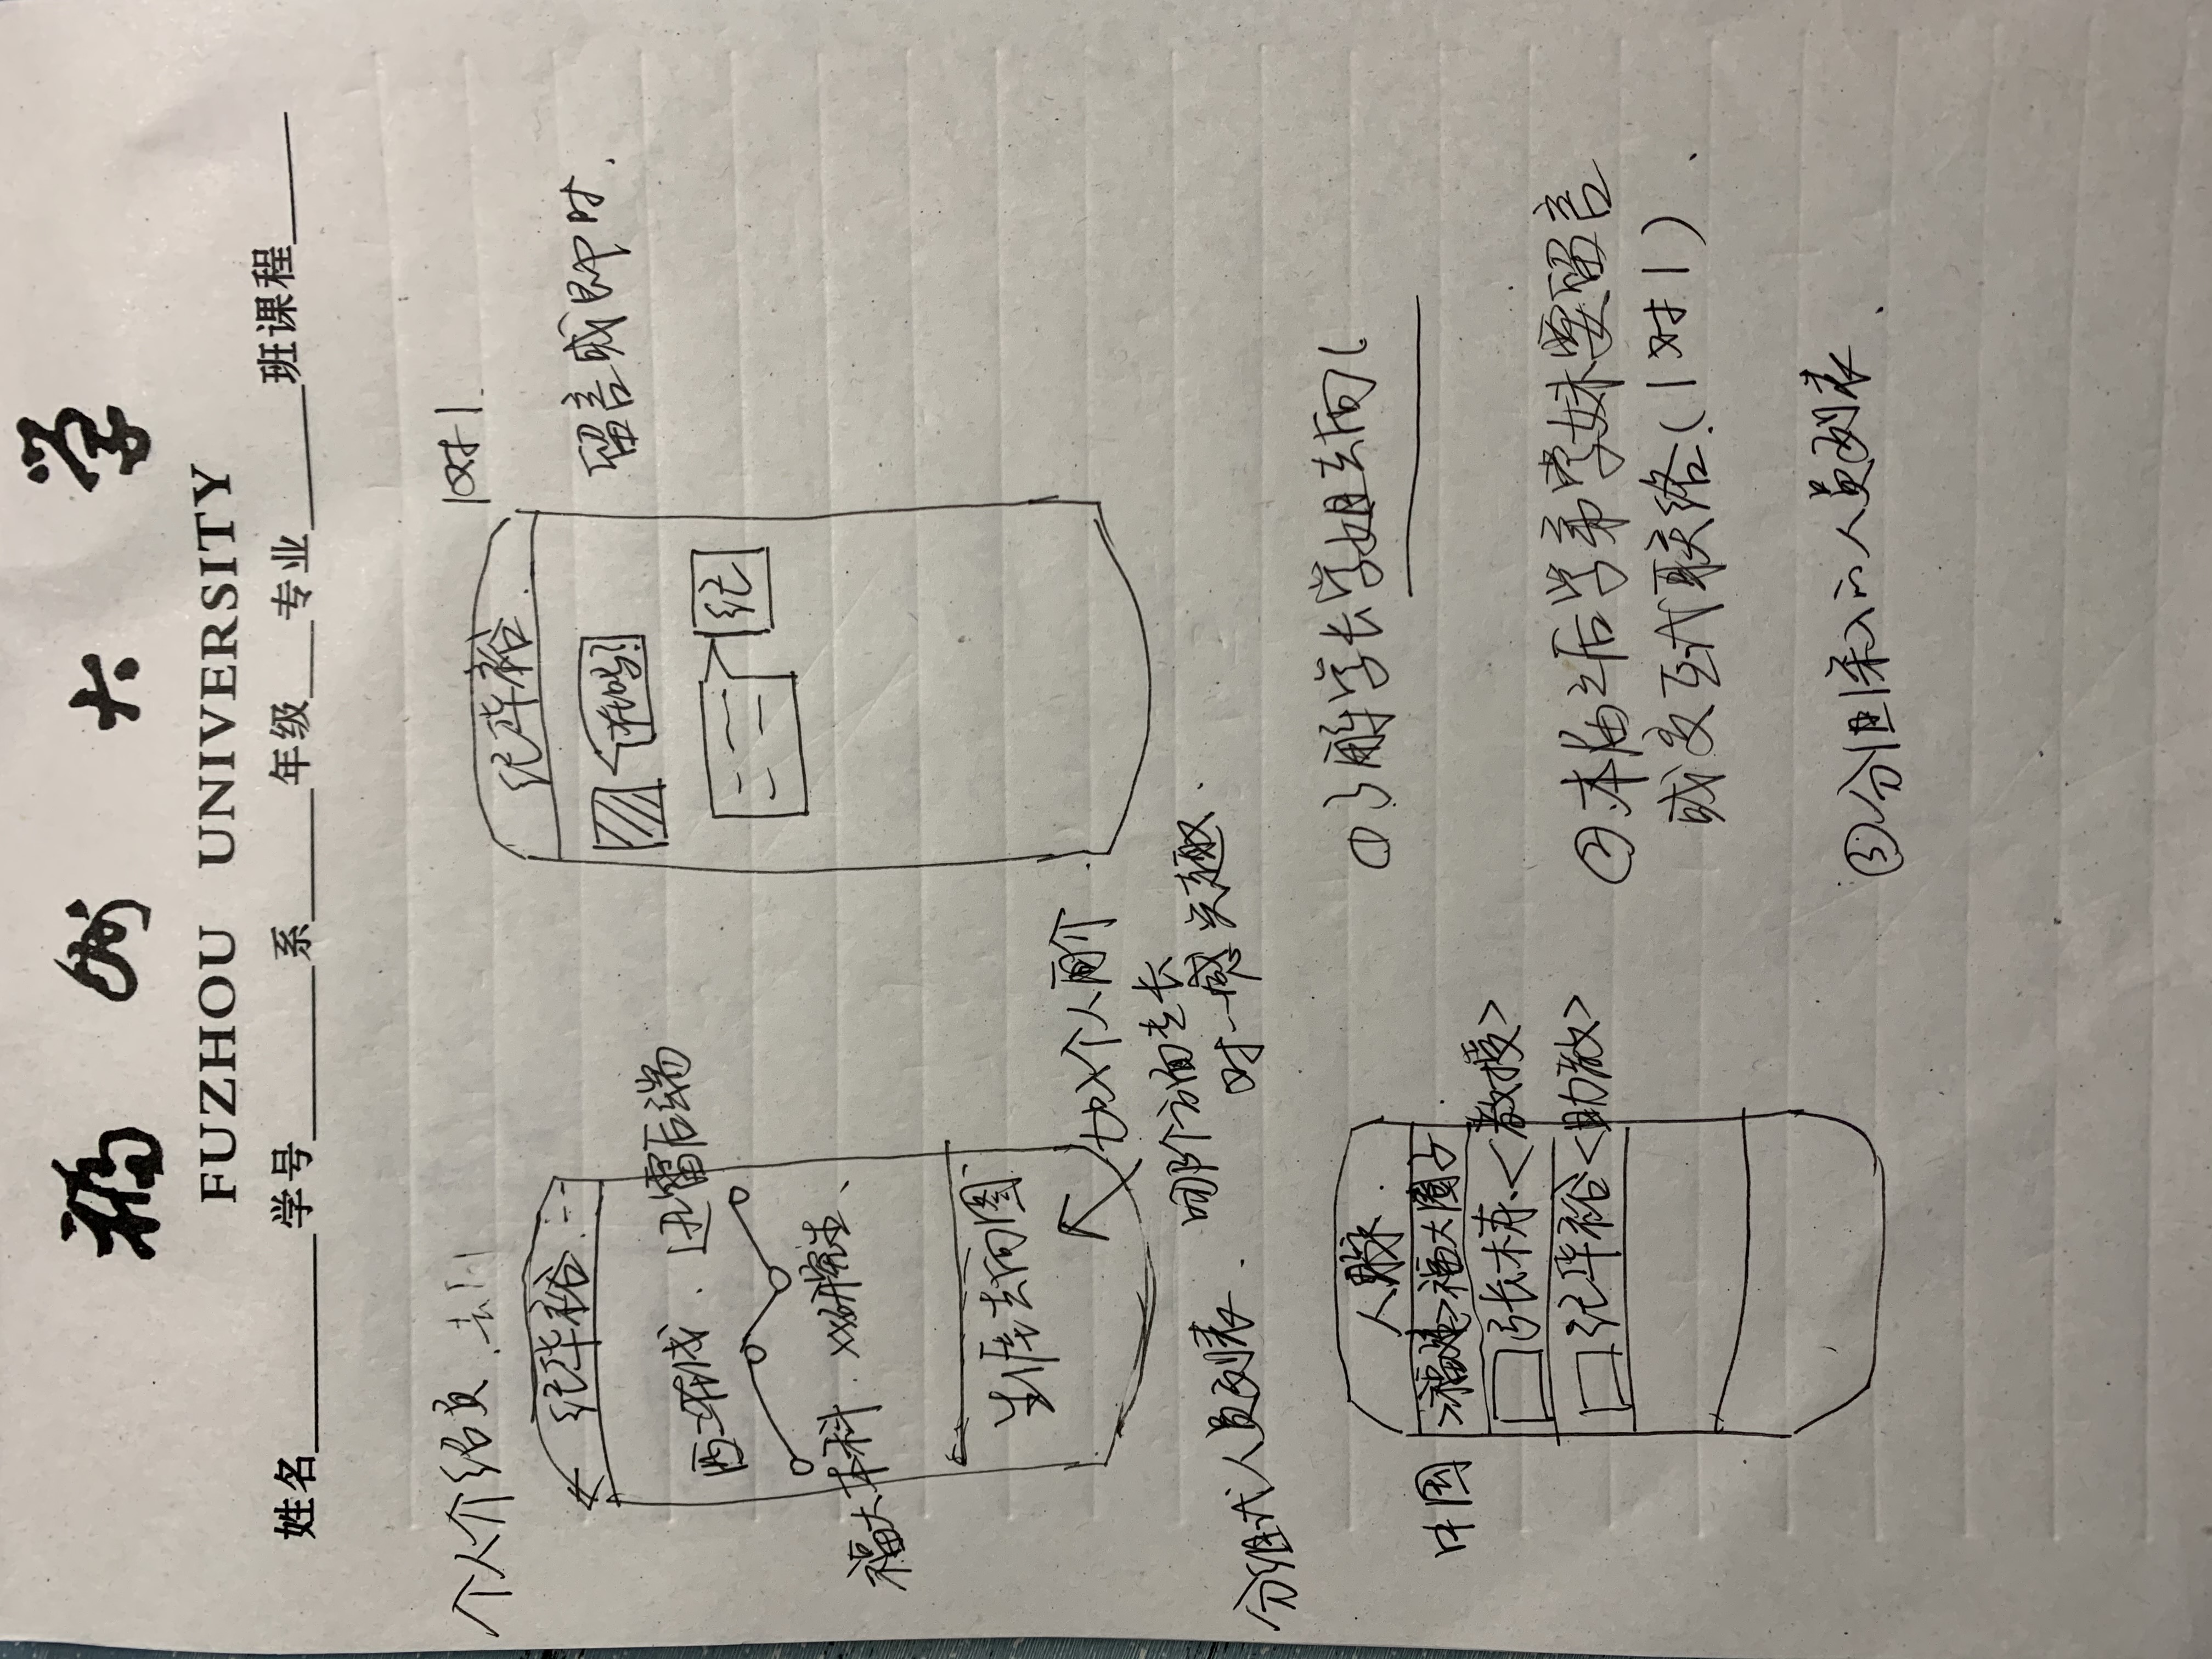 福州大学
FUZHOU UNIVERSITY
姓名 学号 系 年级 专业 班课程
个人介绍页
纪华裕
迅雷后端
福大本科 XX研究生、
生涯去向图
加入个人简介
哪个方面专长
对…感兴趣.
1对1.
纪华裕.
在吗?
纪
留言或即时.
分组式人员列表.
人脉.
中国 >福建>福大圈子.
张栋<教授>
纪华裕<助教>
①了解学长学姐去向
②本届之后学弟学妹要留言
或交互式联络(1对1).
③分组深入的人员列表.